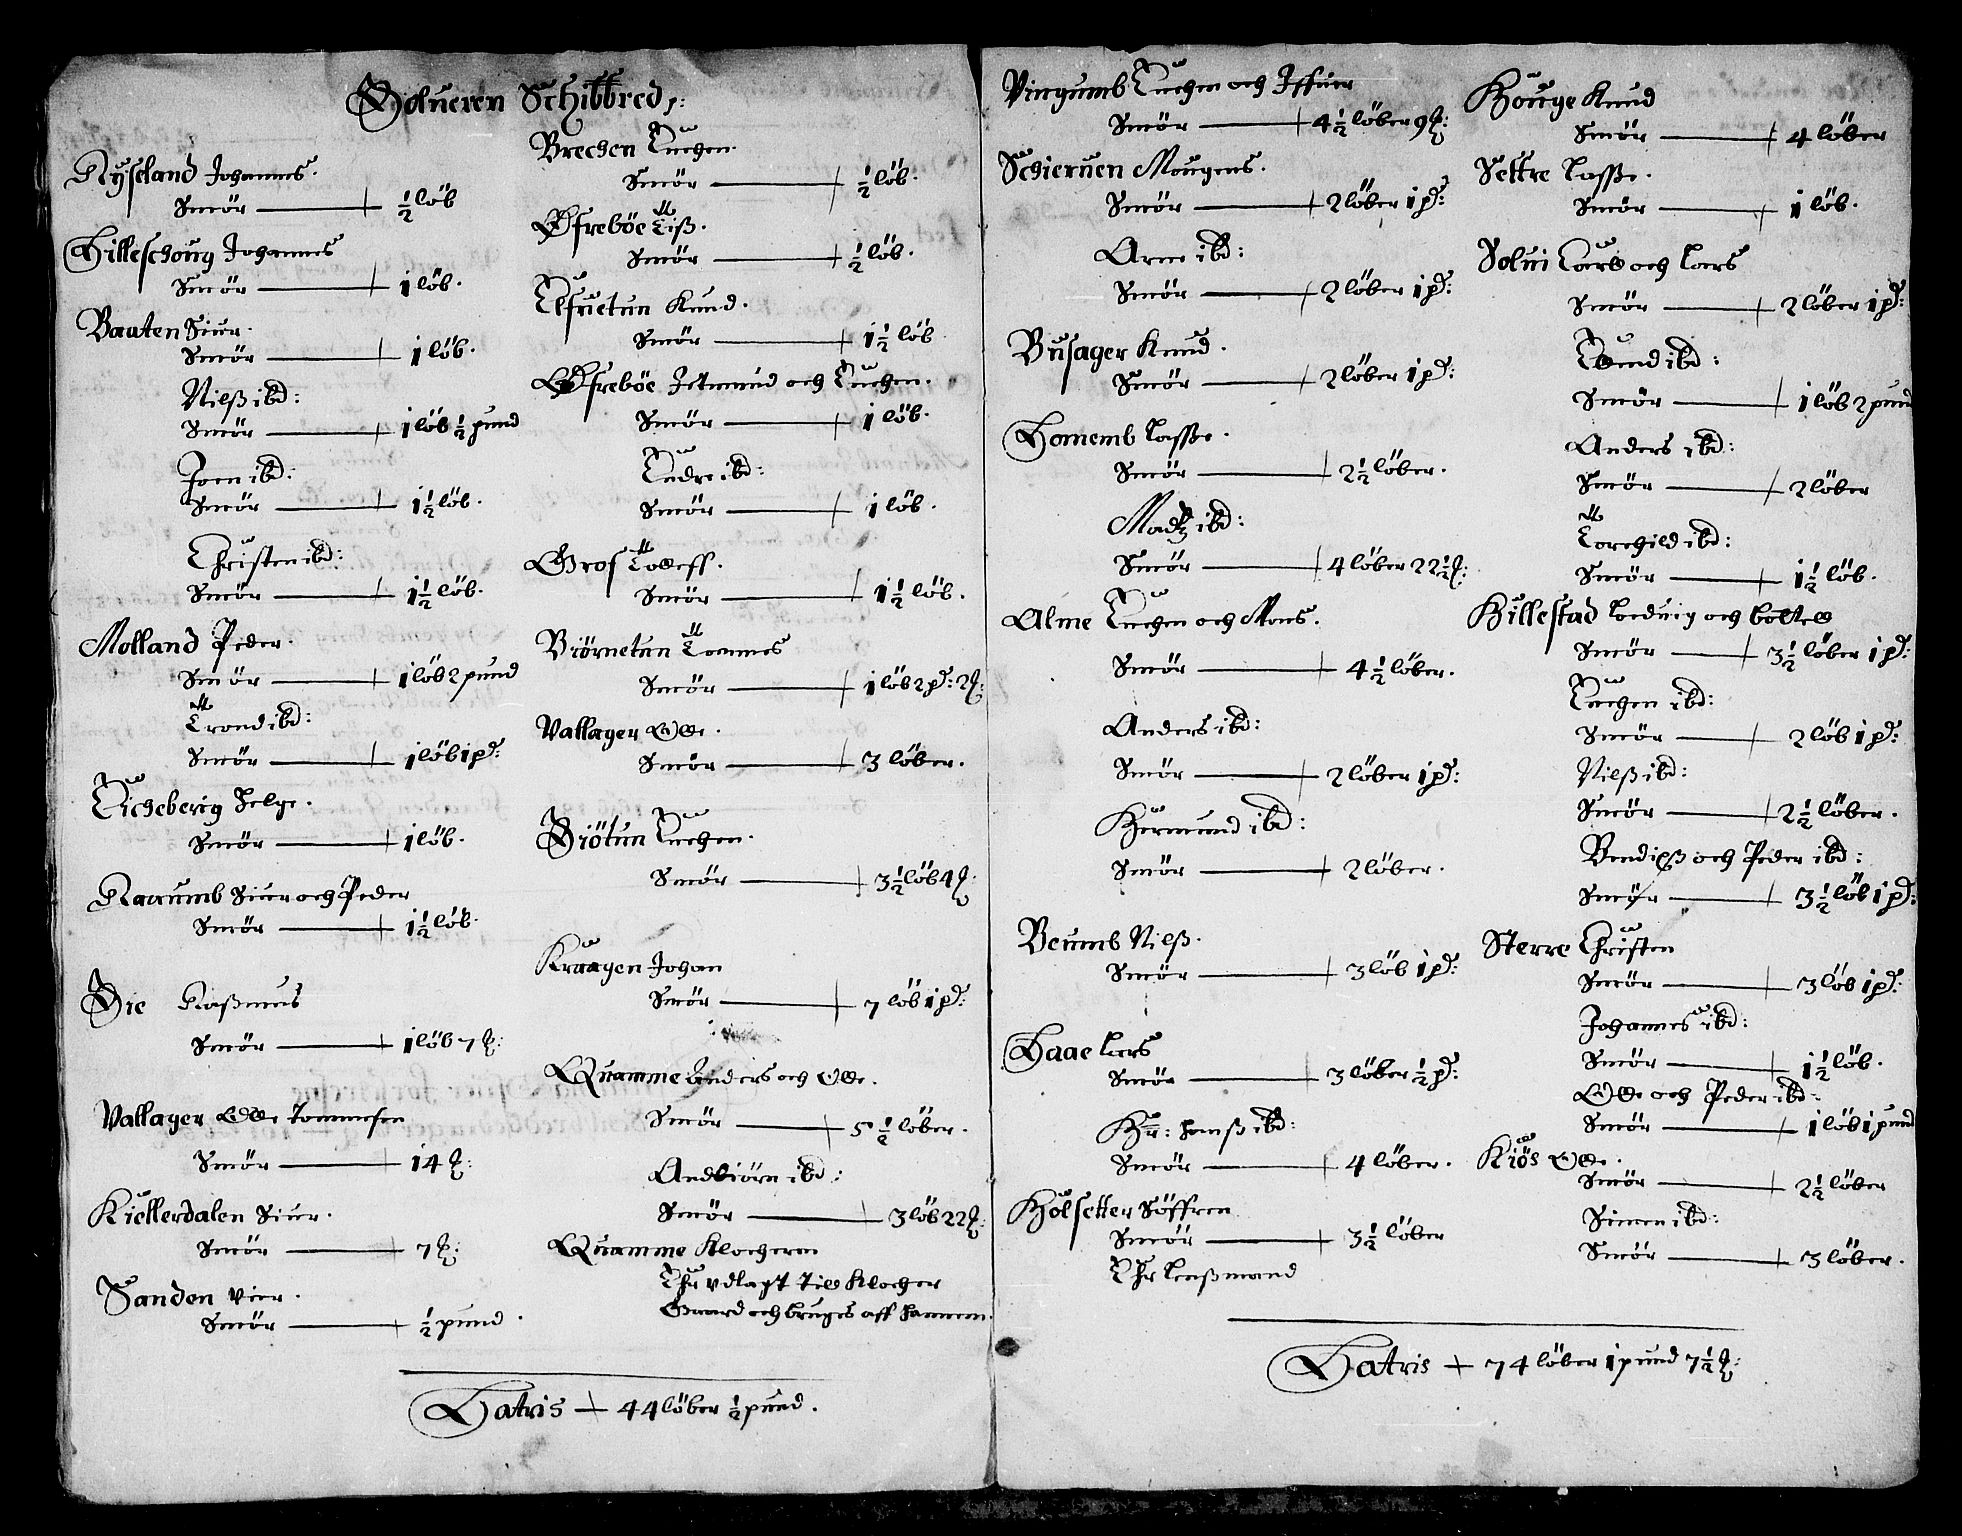 Solueren Schibbred
Nyseland Johannes.
Smör ½ löb
Hilleschoug Johannes
Smör 1 löb.
Baaten Siur.
Smör 1 löb.
Nilß ibd:
Smör 1 löb ½ pund
Joen ibd:
Smör 1½ löb.
Christen ibd:
Smör 1½ löb.
Molland Peder.
Smör 1 löb 2 pund
Trond ibd:
Smör 1 löb 1 pd:
Eicheberig Helge.
Smör 1 löb.
Siur och Peder
Smör 1½ löb.
Die Raßmus
Smör 1 löb 7 ℔:
Vallager Olle Tommesen
Smör 14 ℔:
Kiellerdalen Siur.
Smör 7 ℔:
Sanden
Smör ½ pund.
Brechen Enchen.
Smör ½ löb.
Öfreböe Tiß.
Smör ½ löb.
Knud.
Smör 1½ löb
Öfreböe Jetmund och Enchen.
Smör 1 löb.
Endre ibd:
Smör 1 löb.
Grof Tolleff.
Smör 1½ löb.
Biörnetun Tommes
Smör 1 löb 2 pd: 2 ℔:
Vallager Olle.
Smör 3 löber.
Diötun Enchen.
Smör 3½ löb 4 ℔:
Kraagen Johan
Smör 7 löb 1 pd:
Quamme Anders och Olle.
Smör 5½ löber.
Andbiörn ibd:
Smör 3 löb 22 ℔:
Quamme Klocheren
Ehr vdlagt till Klocher
Gaard och bruges aff hannem.
Latris 44 löber ½ pund.
Vingumb Enchen och Iffuer
Smör 4½ löber 9 ℔:
Schieruen Mougens.
Smör 2 löber 1 pd:
Arne ibd:
Smör 2 löber 1 pd:
Busager Knud.
Smör 2 löber 1 pd:
Homemb Lasße.
Smör 2½ löber.
Madtz ibd:
Smör 4 löber 22½ ℔:
Alme Enchen och Mons.
Smör 4½ löber.
Anders ibd:
Smör 2 löber 1 pd:
Germund ibd:
Smör 2 löber.
Beumb Nilß.
Smör 3 löb 1 pd:
Haae Lars
Smör 3 löber ½ pd:
Hr: Hanß ibd:
Smör 4 löber.
Holsetter Söffren
Smör 3½ löber
Ehr Lenßmand
Houge Knud
Smör 4 löber
Settre Lasße.
Smör 1 löb.
Solui och Lars
Smör 2 löber 1 pd:
Smör 1 löb 2 pund
Anders ibd:
Smör 2 löber
Torchild ibd:
Smör 1½ löb.
Hillestad Loduig och Bottell
Smör 3½ löber 1 pd:
Enchen ibd:
Smör 2 löb 1 pd:
Nilß ibd:
Smör 2½ löber.
Bendixß och Peder ibd:
Smör 3½ löb 1 pd:
Sterre Christen
Smör 3 löb 1 pd:
Johannes ibd:
Smör 1½ löb.
Olle och Peder ibd:
Smör 1 löb 1 pund
Kiös Olle.
Smör 2½ löber
Simen ibd:
Smör 3 löber.
Latris 74 löber 1 pund 7½ ℔: